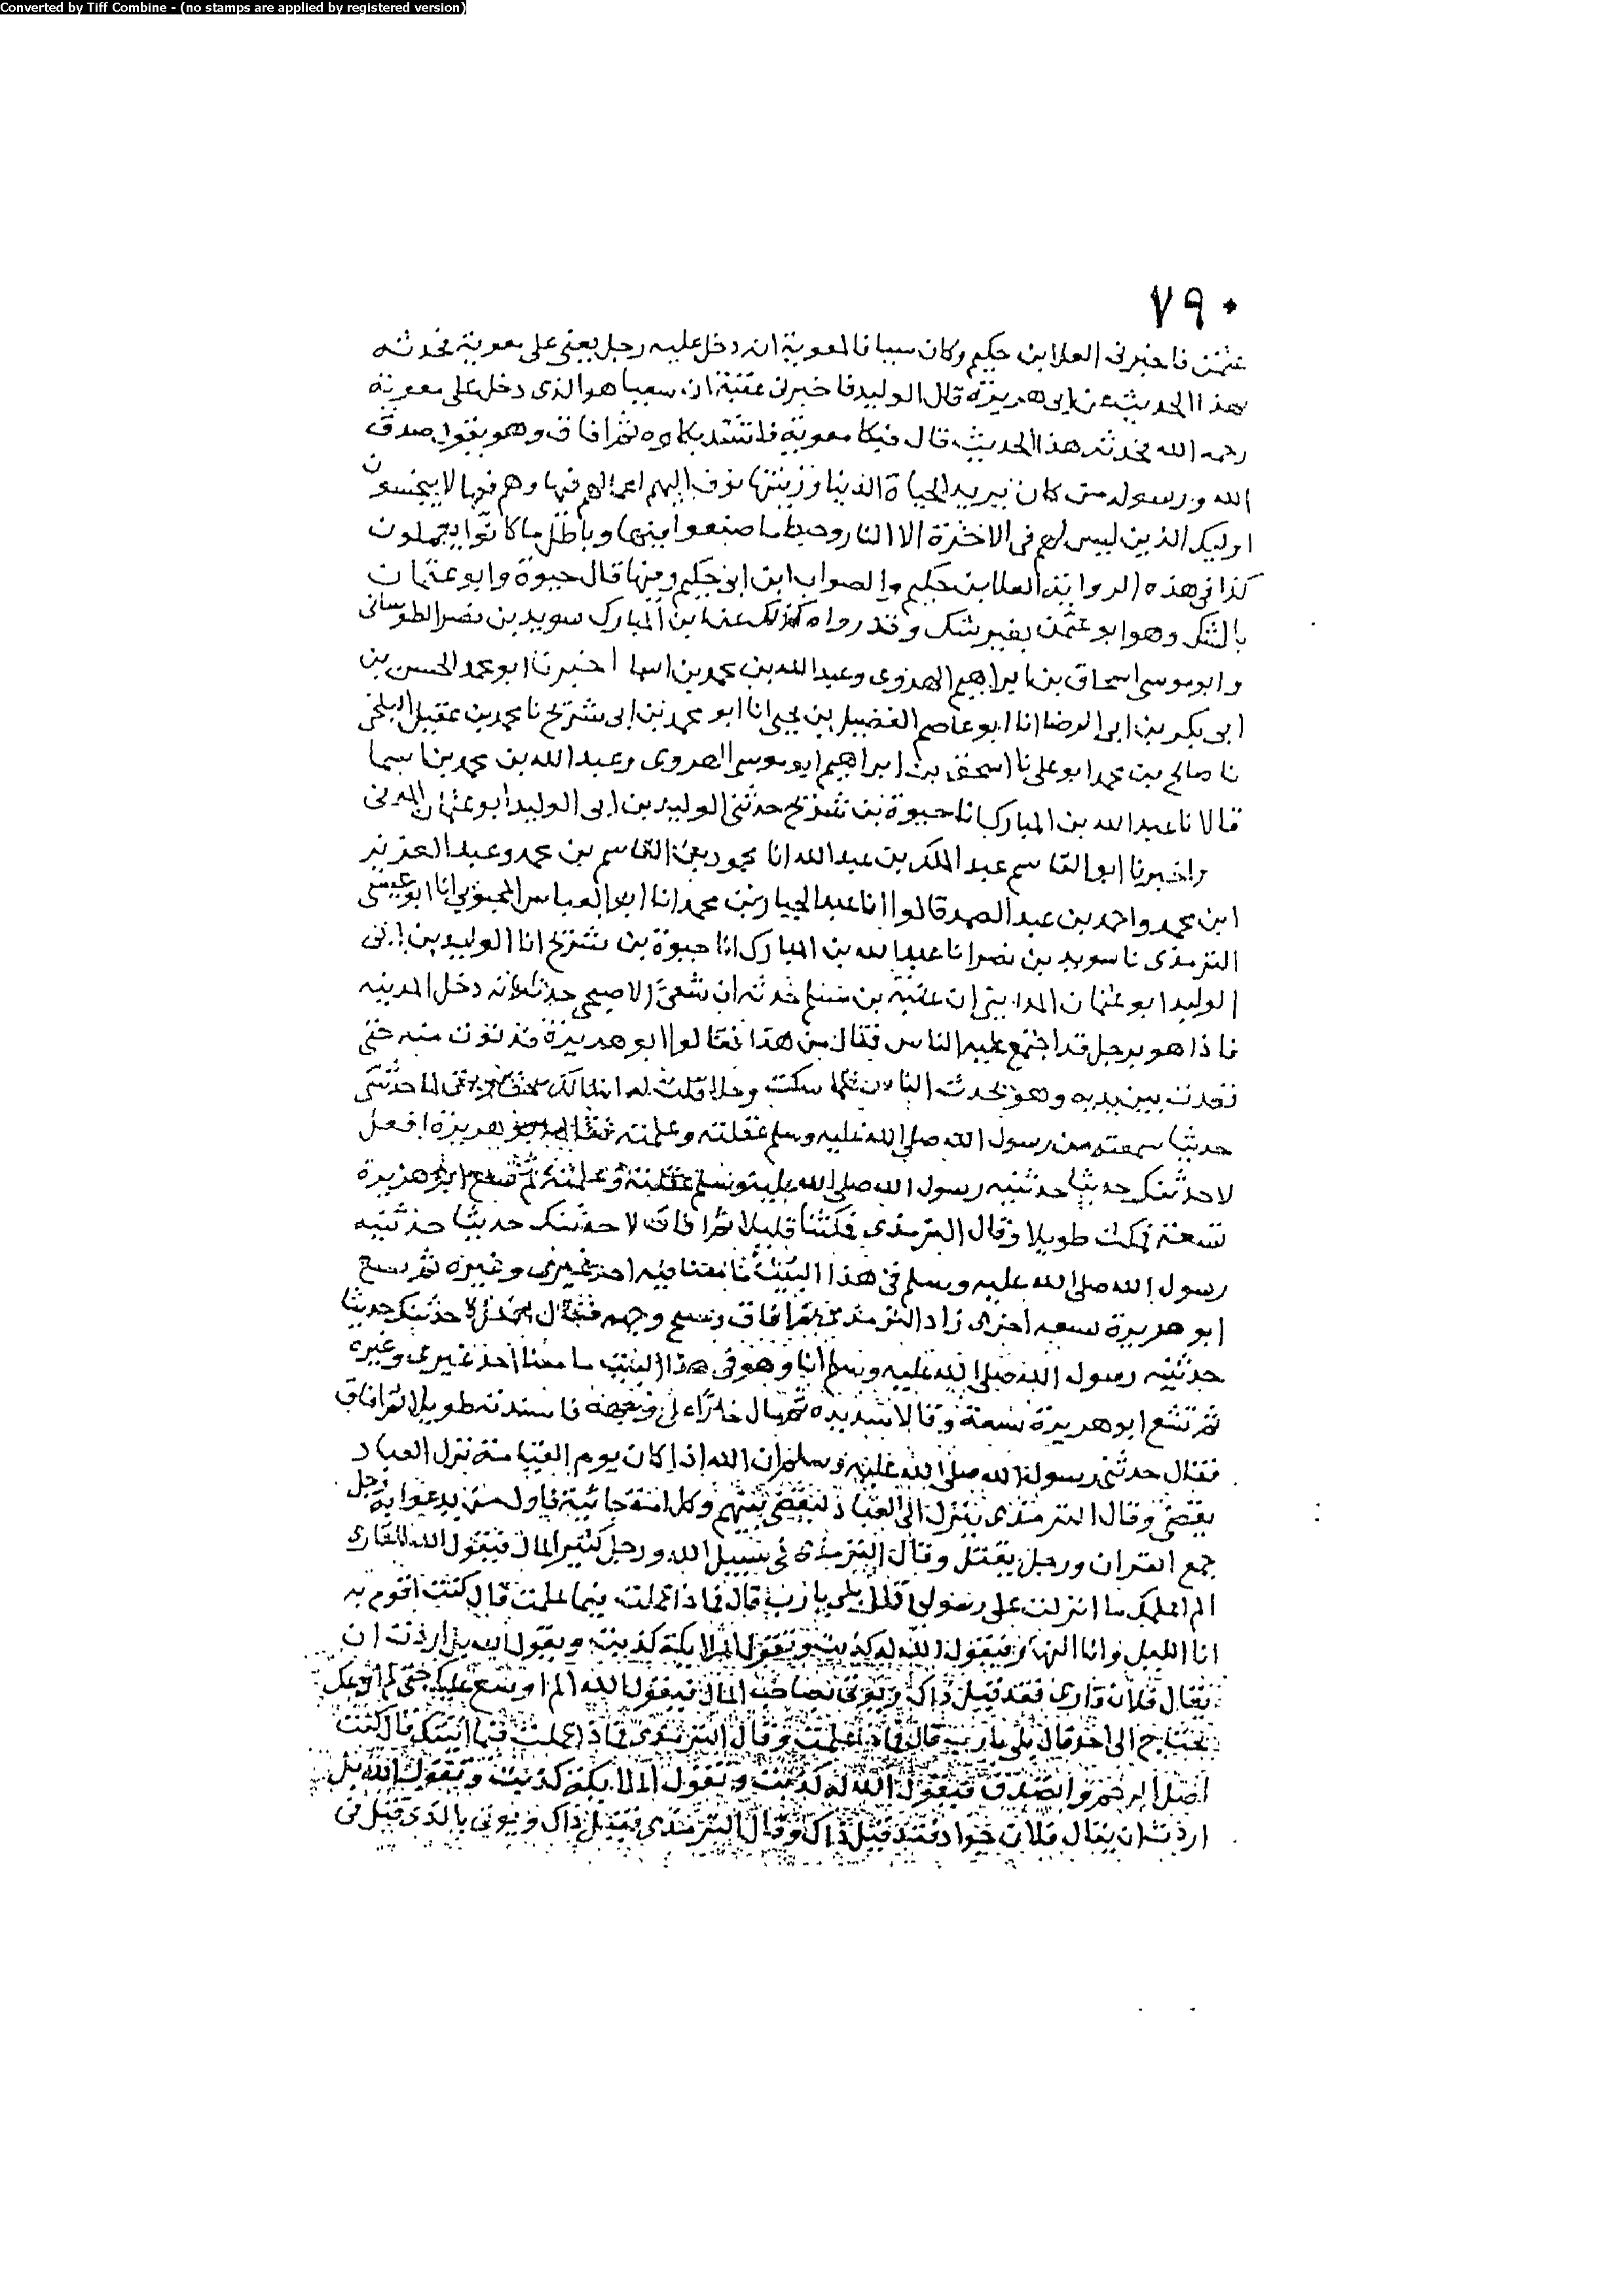 Converted by Tiff Combine - (no stamps are applied by registered version)
٧٩٠
عثمن فاخبرنى العلا بن حكيم وكان سيافا لمعوية انه دخل عليه رجل يعنى على معوية فحدثه
بهذا الحديث عن ابى هريرة قال الوليد فاخبرنى عقبة ان سفيا هو الذى دخل على معوية
رحمه الله فحدثه هذا الحديث قال فبكا معوية فاشتد بكاوه ثم افاق وهو يقول صدق
الله ورسوله من كان يريد الحياة الدنيا وزينتها نوف اليهم اعمالهم فيها وهم فيها لا يبخسون
اوليك الذين ليس لهم فى الاخرة الا النار وحبط ما صنعوا فيها وباطل ما كانوا يعملون
كذا فى هذه الرواية العلا بن حكيم والصواب ابن ابى حكيم وفيها قال حيوة وابو عثمان
بالشك وهو ابو عثمن بغير شك وقد رواه كذلك عن ابن المبارك سويد بن نصر الطوسانى
وابو موسى اسحاق بن ابراهيم الهروى وعبد الله بن محمد بن اسما اخبرنا ابو محمد الحسن بن
ابى بكر بن ابى الرضا انا ابو عاصم الفضيل بن يحيى انا ابو محمد بن ابى شريح نا محمد بن عقيل البلخى
نا صالح بن محمد ابو على نا اسحق بن ابراهيم ابو موسى الهروى وعبد الله بن محمد بن اسما
قالا نا عبد الله بن المبارك نا حيوة بن شريح حدثنى الوليد بن ابى الوليد ابو عثمان المدنى
واخبرنا ابو القاسم عبد الملك بن عبد الله انا محمود بن القاسم بن محمد وعبد العزيز
ابن محمد واحمد بن عبد الصمد قالوا انا عبد الجبار بن محمد انا ابو العباس المحبوبى انا ابو عيسى
الترمذى نا سويد بن نصر انا عبد الله بن المبارك انا حيوة بن شريح انا الوليد بن ابى
الوليد ابو عثمان المداينى ان عقبة بن مسلم حدثه ان شفى الاصبحى حدثه انه دخل المدينه
فاذا هو برجل قد اجتمع عليه الناس فقال من هذا فقالوا ابو هريرة فدنوت منه حتى
قعدت بين يديه وهو يحدث الناس فلما سكت وخلا قلت له اسالك بحق لما حدثتنى
حديثا سمعته من رسول الله صلى الله عليه وسلم عقلته وعلمته فقال ابو هريرة افعل
لاحدثنك حديثا حدثنيه رسول الله صلى الله عليه وسلم عقلته وعلمته ثم نشغ ابو هريرة
نشغة فمكث طويلا وقال الترمذى فمكثنا قليلا ثم افاق لاحدثنك حديثا حدثنيه
رسول الله صلى الله عليه وسلم فى هذا البيت ما معنا فيه احد غيرى وغيره ثم نشغ
ابو هريرة نشغه اخرى زاد الترمذى ثم افاق ومسح وجهه فقال لاحدثنك حديثا
حدثنيه رسول الله صلى الله عليه وسلم انا وهو فى هذا البيت ما معنا احد غيرى وغيره
ثم نشغ ابو هريرة نشغة وقالا شديده ثم مال خارا على وجهه فاسندته طويلا ثم افاق
فقال حدثنى رسول الله صلى الله عليه وسلم ان الله اذا كان يوم القيامة نزل العباد
يقضى وقال الترمذى ينزل الى العباد ليقضى بينهم وكل امة جاثية فاول من يدعوا به رجل
جمع القران ورجل يقتل وقال الترمذى فى سبيل الله ورجل كثير المال فيقول الله للقارى
الم اعلمك ما انزلت على رسولى قال بلى يا رب قال فماذا عملت فيما علمت قال كنت اقوم به
انا الليل وانا النهار فيقول الله له كذبت وتقول الملايكة كذبت ويقول الله بل اردت ان
يقال فلان قارى فقد قيل ذاك ويوتى بصاحب المال فيقول الله الم اوسع عليك حتى لم ادعك
تحتاج الى احد قال بلى يا رب قال فماذا عملت وقال الترمذى فماذا عملت فيما اتيتك قال كنت
اصل الرحم واتصدق فيقول الله له كذبت وتقول الملايكة كذبت ويقول الله بل
اردت ان يقال فلان جواد فقد قيل ذاك وقال الترمذى فقيل ذاك ويوتى بالذى قتل فى